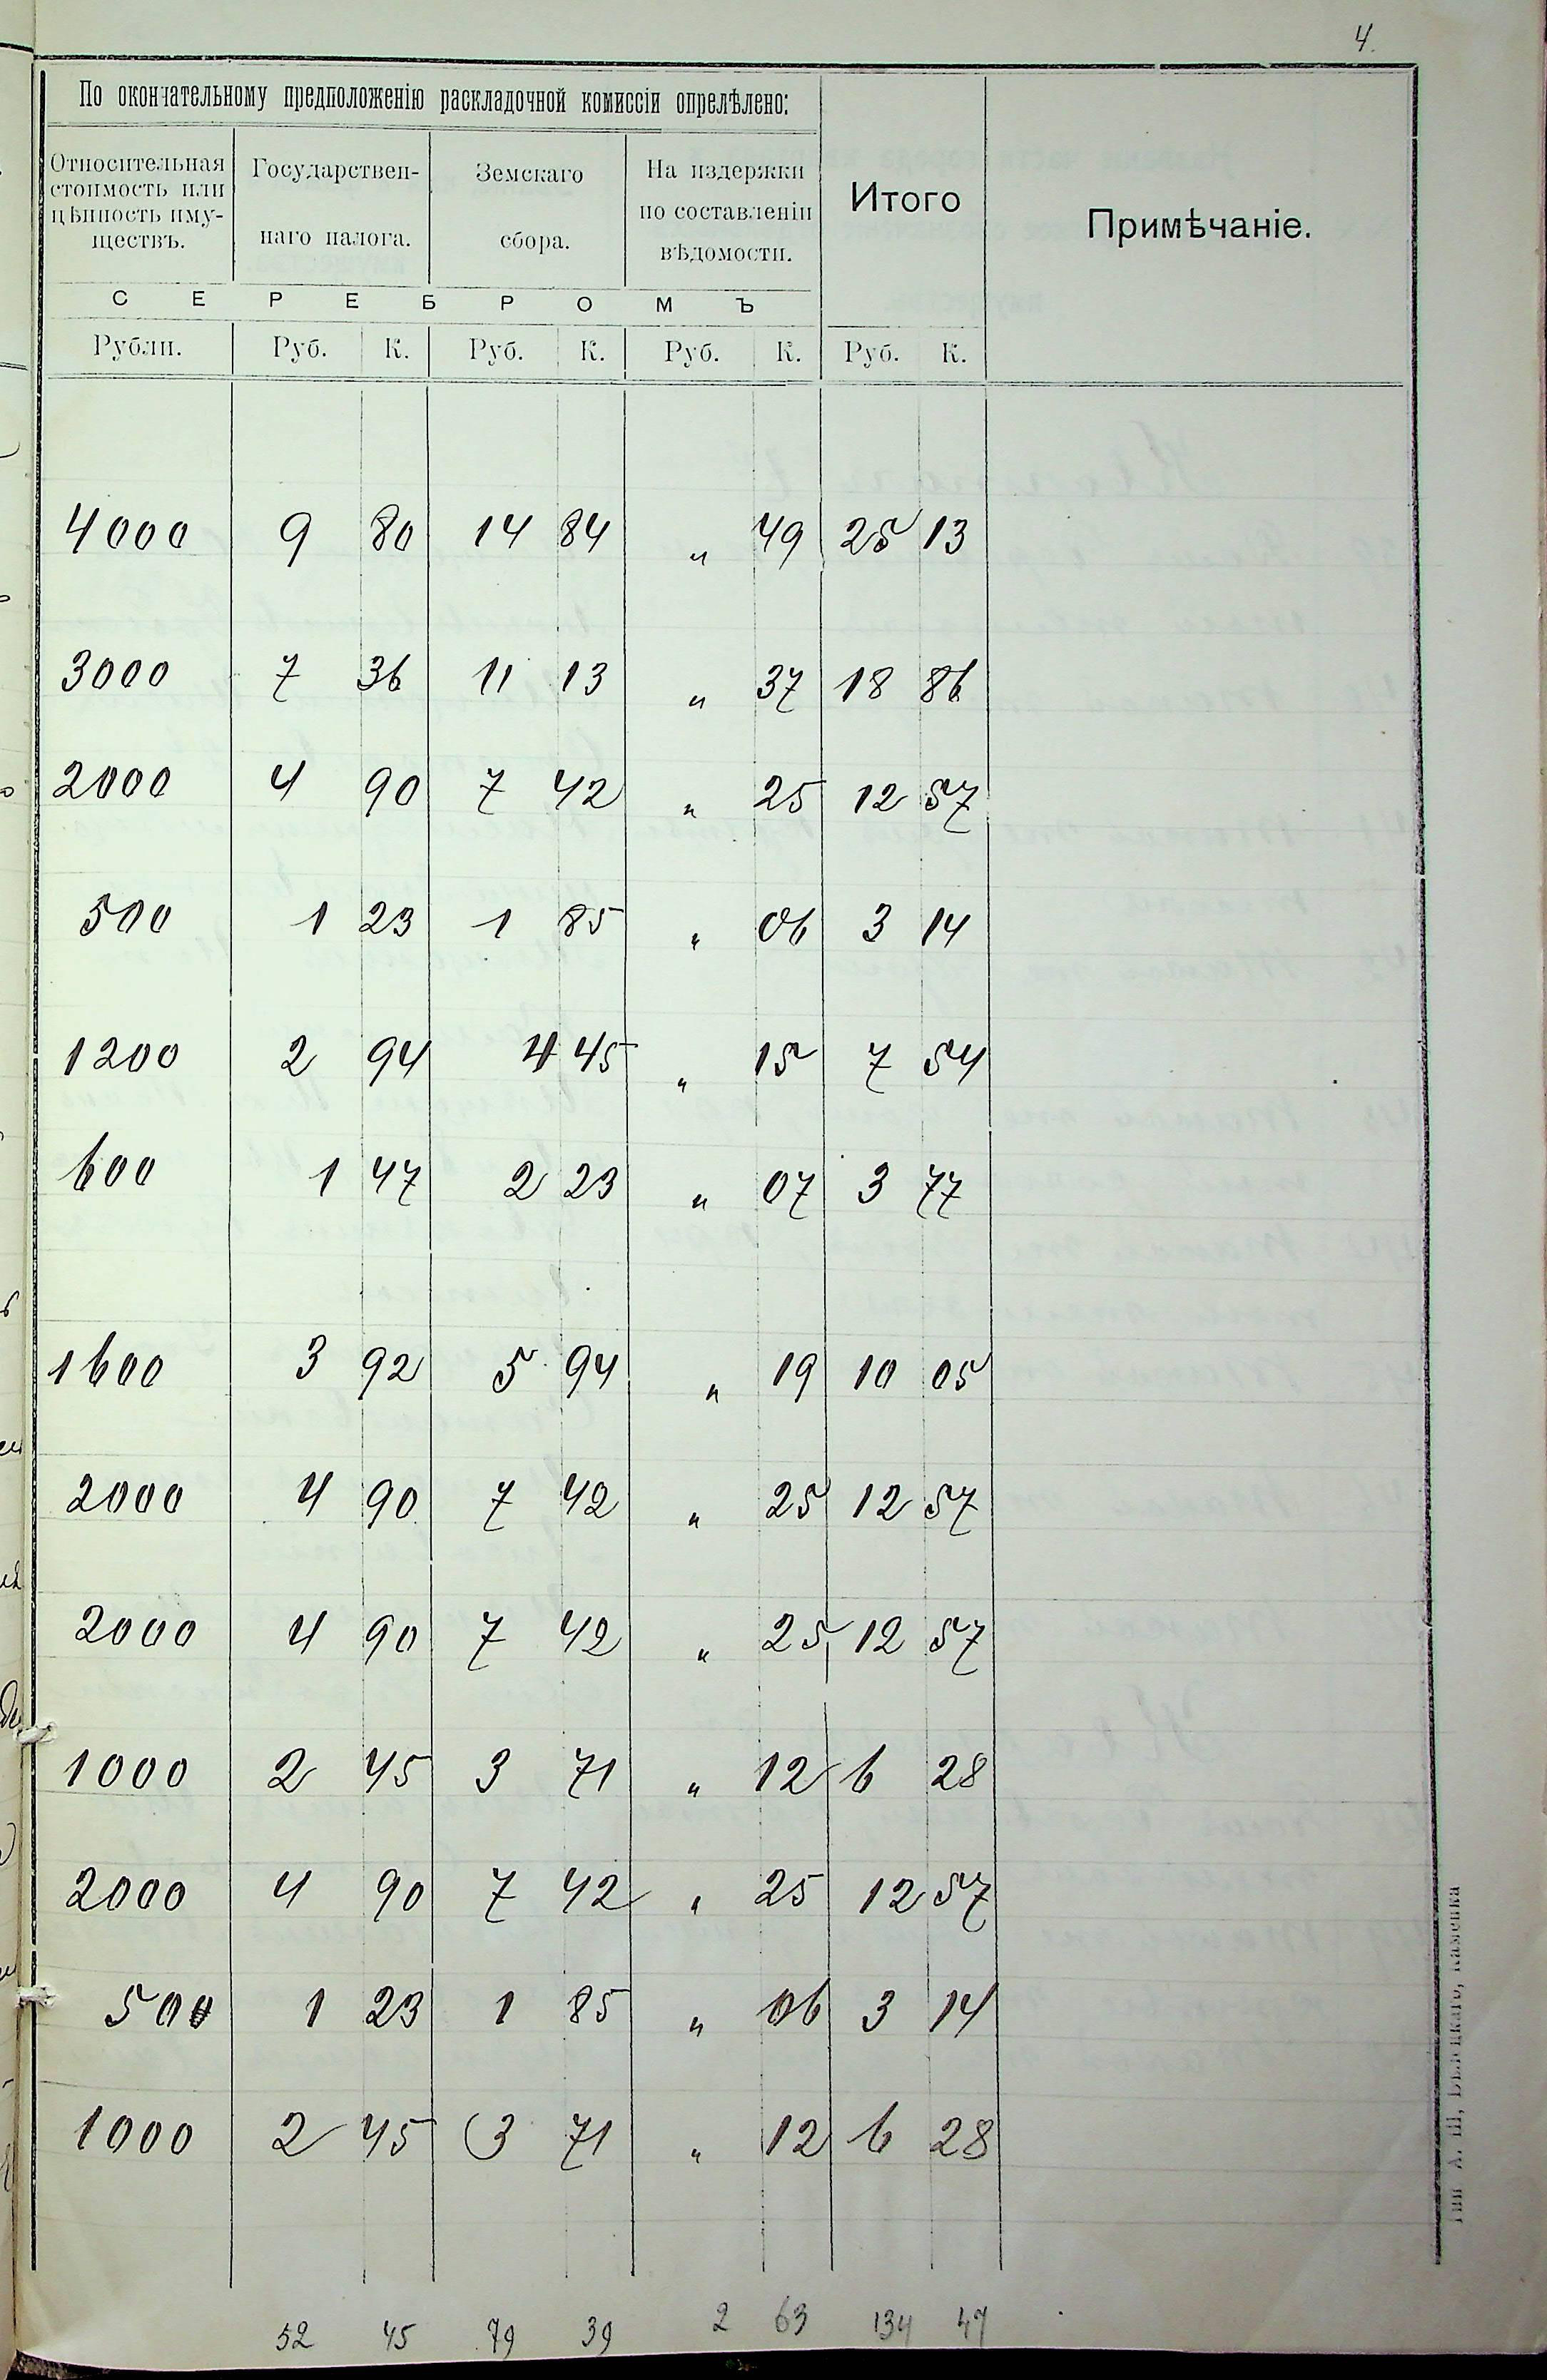 4.
По окончательному предположенію раскладочной комиссіи опрелѣлено:
Относительная стоимость или цѣнность иму-ществъ.
Государствен-наго налога.
Земскаго сбора.
На издержки по составленіи вѣдомости.
Итого
Примѣчаніе.
С Е Р Е Б Р О М Ъ
Рубли. Руб. К. Руб. К. Руб. К. Руб. К.
4000 9 80 14 84 „ 49 25 13
3000 7 36 11 13 „ 37 18 86
2000 4 90 7 42 „ 25 12 57
500 1 23 1 85 „ 06 3 14
1200 2 94 4 45 „ 15 7 54
600 1 47 2 23 „ 07 3 77
1600 3 92 5 94 „ 19 10 05
2000 4 90 7 42 „ 25 12 57
2000 4 90 7 42 „ 25 12 57
1000 2 45 3 71 „ 12 6 28
2000 4 90 7 42 „ 25 12 57
500 1 23 1 85 „ 06 3 14
1000 2 45 3 71 „ 12 6 28
52 45 79 39 2 63 134 47